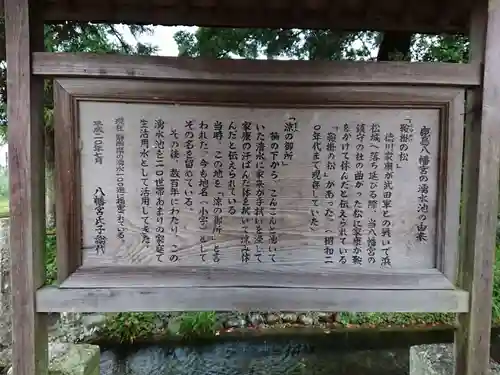 鹿島八幡宮の湧水池の由来
「鞍掛の松」
徳川家康が武田軍との戦いで浜
松城へ落ち延びる際、当八幡宮の
鎮守の杜の曲がった松に家康が鞍
をかけて休んだと伝えられている
「鞍掛の松」があった。(昭和二
〇年代まで現存していた)
「涼の御所」
松の下から、こんこんと湧いて
いた清水に家来が手拭いを浸して
家康の汗ばんだ体を拭いて涼み休
んだと伝えられている
当時、この地を「涼の御所」と言
われた。今も地名(小字)として
その名を留めている。
その後、数百年にわたり、この
湧水池を二〇世帯あまりの家庭で
生活用水として活用してきた。
現在、静岡県の湧水一〇〇選に指定されている。
平成二〇年七月
八幡宮氏子総代